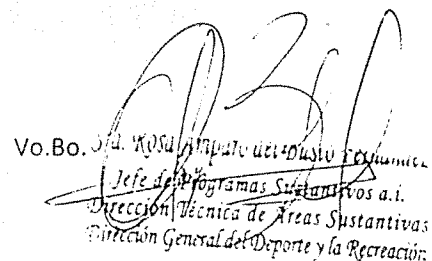 Vo.Bo. Rosa Amparo del Busto
Jefe de Programas Sustantivos a.i.
Dirección Técnica de Areas Sustantivas
Dirección General del Deporte y la Recreación